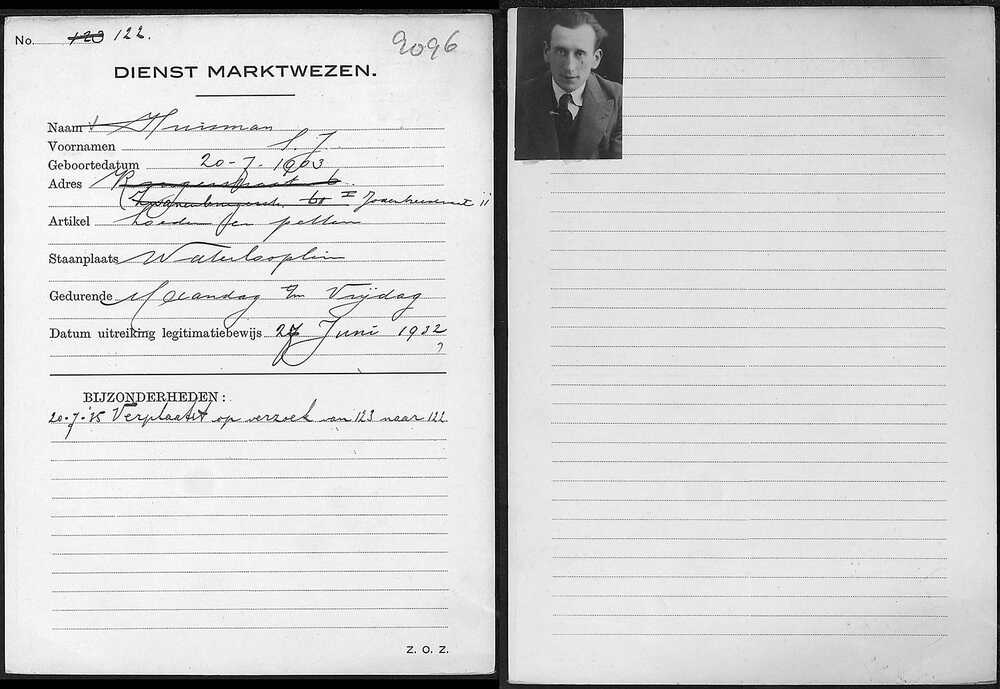 No. 123 122.
9096
DIENST MARKTWEZEN.
Naam Huisman
Voornamen S. J.
Geboortedatum 20-7-1903
Adres
Zwanenburgerstr. 60 I Jodenbreestraat 11
Artikel hoeden en petten
Staanplaats Waterlooplein
Gedurende Maandag t/m Vrijdag
Datum uitreiking legitimatiebewijs 27 Juni 1932
BIJZONDERHEDEN:
20-7-'35 Verplaatst op verzoek van 123 naar 122
Z. O. Z.